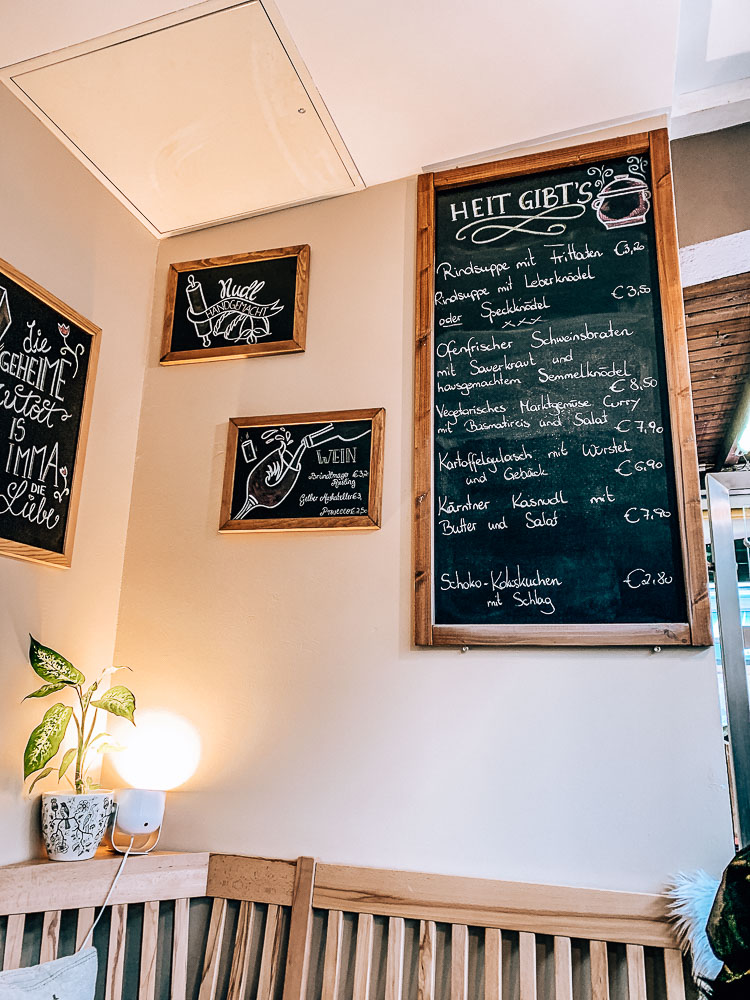 Die
GEHEIME
Zutat
IS
IMMA
DIE
Liebe
Nudl
HANDGEMACHT
WEIN
€3,2
Riesling
Gelber Muskateller €3,
Prosecco €2,50
HEIT GIBT'S
Rindsuppe mit Frittaten €3,20
Rindsuppe mit Leberknödel
oder Speckknödel €3,50
xxx
Ofenfrischer Schweinsbraten
mit Sauerkraut und
hausgemachtem Semmelknödel
€8,50
Vegetarisches Marktgemüse Curry
mit Basmatireis und Salat €7,90
Kartoffelgulasch mit Würstel
und Gebäck €6,90
Kärntner Kasnudl mit
Butter und Salat €7,90
Schoko-Kokoskuchen €2,80
mit Schlag